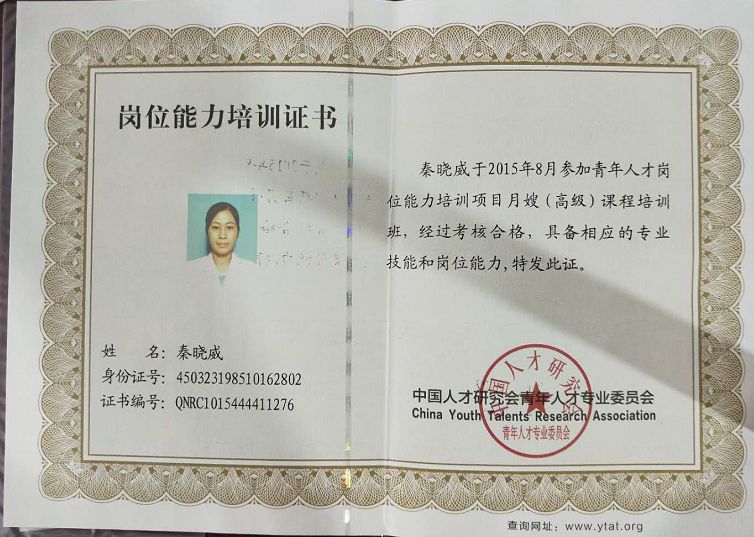 岗位能力培训证书
姓　名：秦晓威
身份证号：450323198510162802
证书编号：QNRC1015444411276
秦晓威于2015年8月参加青年人才岗
位能力培训项目月嫂（高级）课程培训
班，经过考核合格，具备相应的专业
技能和岗位能力，特发此证。
中国人才研究会
中国人才研究会青年人才专业委员会
China Youth Talents Research Association
青年人才专业委员会
查询网址：www.ytat.org